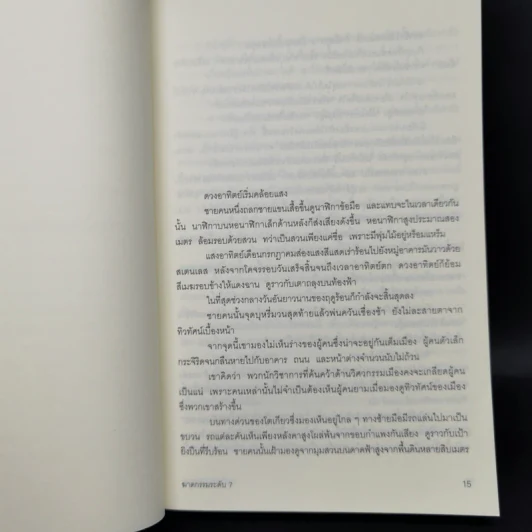 ดวงอาทิตย์เริ่มคล้อยแสง
ชายคนหนึ่งถลกชายแขนเสื้อขึ้นดูนาฬิกาข้อมือ และแทบจะในเวลาเดียวกัน
นั้น นาฬิกาบนหอนาฬิกาเล็กด้านหลังก็ส่งเสียงดังขึ้น หอนาฬิกาสูงประมาณสอง
เมตร ล้อมรอบด้วยสวน ทว่าเป็นสวนเพียงแค่ชื่อ เพราะมีพุ่มไม้อยู่หร็อมแหร็ม
แสงอาทิตย์เดือนกรกฎาคมส่องแสงสีแสดเร่าร้อนไปยังหมู่อาคารมันวาวด้วย
สเตนเลส หลังจากโคจรรอบวันเสร็จสิ้นจนถึงเวลาอาทิตย์ตก ดวงอาทิตย์ก็ย้อม
สีเมฆรอบข้างให้แดงฉาน ดูราวกับเตาถลุงบนท้องฟ้า
ในที่สุดช่วงกลางวันอันยาวนานของฤดูร้อนก็กำลังจะสิ้นสุดลง
ชายคนนั้นจุดบุหรี่มวนสุดท้ายแล้วพ่นควันเชื่องช้า ยังไม่ละสายตาจาก
ทิวทัศน์เบื้องหน้า
จากจุดนี้เขามองไม่เห็นร่างของผู้คนซึ่งน่าจะอยู่กันเต็มเมือง ผู้คนตัวเล็ก
กระจิริดจนกลืนหายไปกับอาคาร ถนน และหน้าต่างจำนวนนับไม่ถ้วน
เขาคิดว่า พวกนักวิชาการที่ค้นคว้าด้านวิศวกรรมเมืองคงจะเกลียดผู้คน
เป็นแน่ เพราะคนเหล่านั้นไม่จำเป็นต้องเห็นผู้คนยามเมื่อมองดูทิวทัศน์ของเมือง
ซึ่งพวกเขาสร้างขึ้น
บนทางด่วนของโตเกียวซึ่งมองเห็นอยู่ใกล ๆ ทางซ้ายมือมีรถแล่นไปมาเป็น
ขบวน รถแต่ละคันเห็นเพียงหลังคาสูงโผล่พ้นจากขอบกำแพงกันเสียง ดูราวกับเป้า
ยิงปืนที่รีบร้อน ชายคนนั้นเฝ้ามองดูจากมุมสวนบนดาดฟ้าสูงจากพื้นดินหลายสิบเมตร
ฆาตกรรมระดับ 7
15